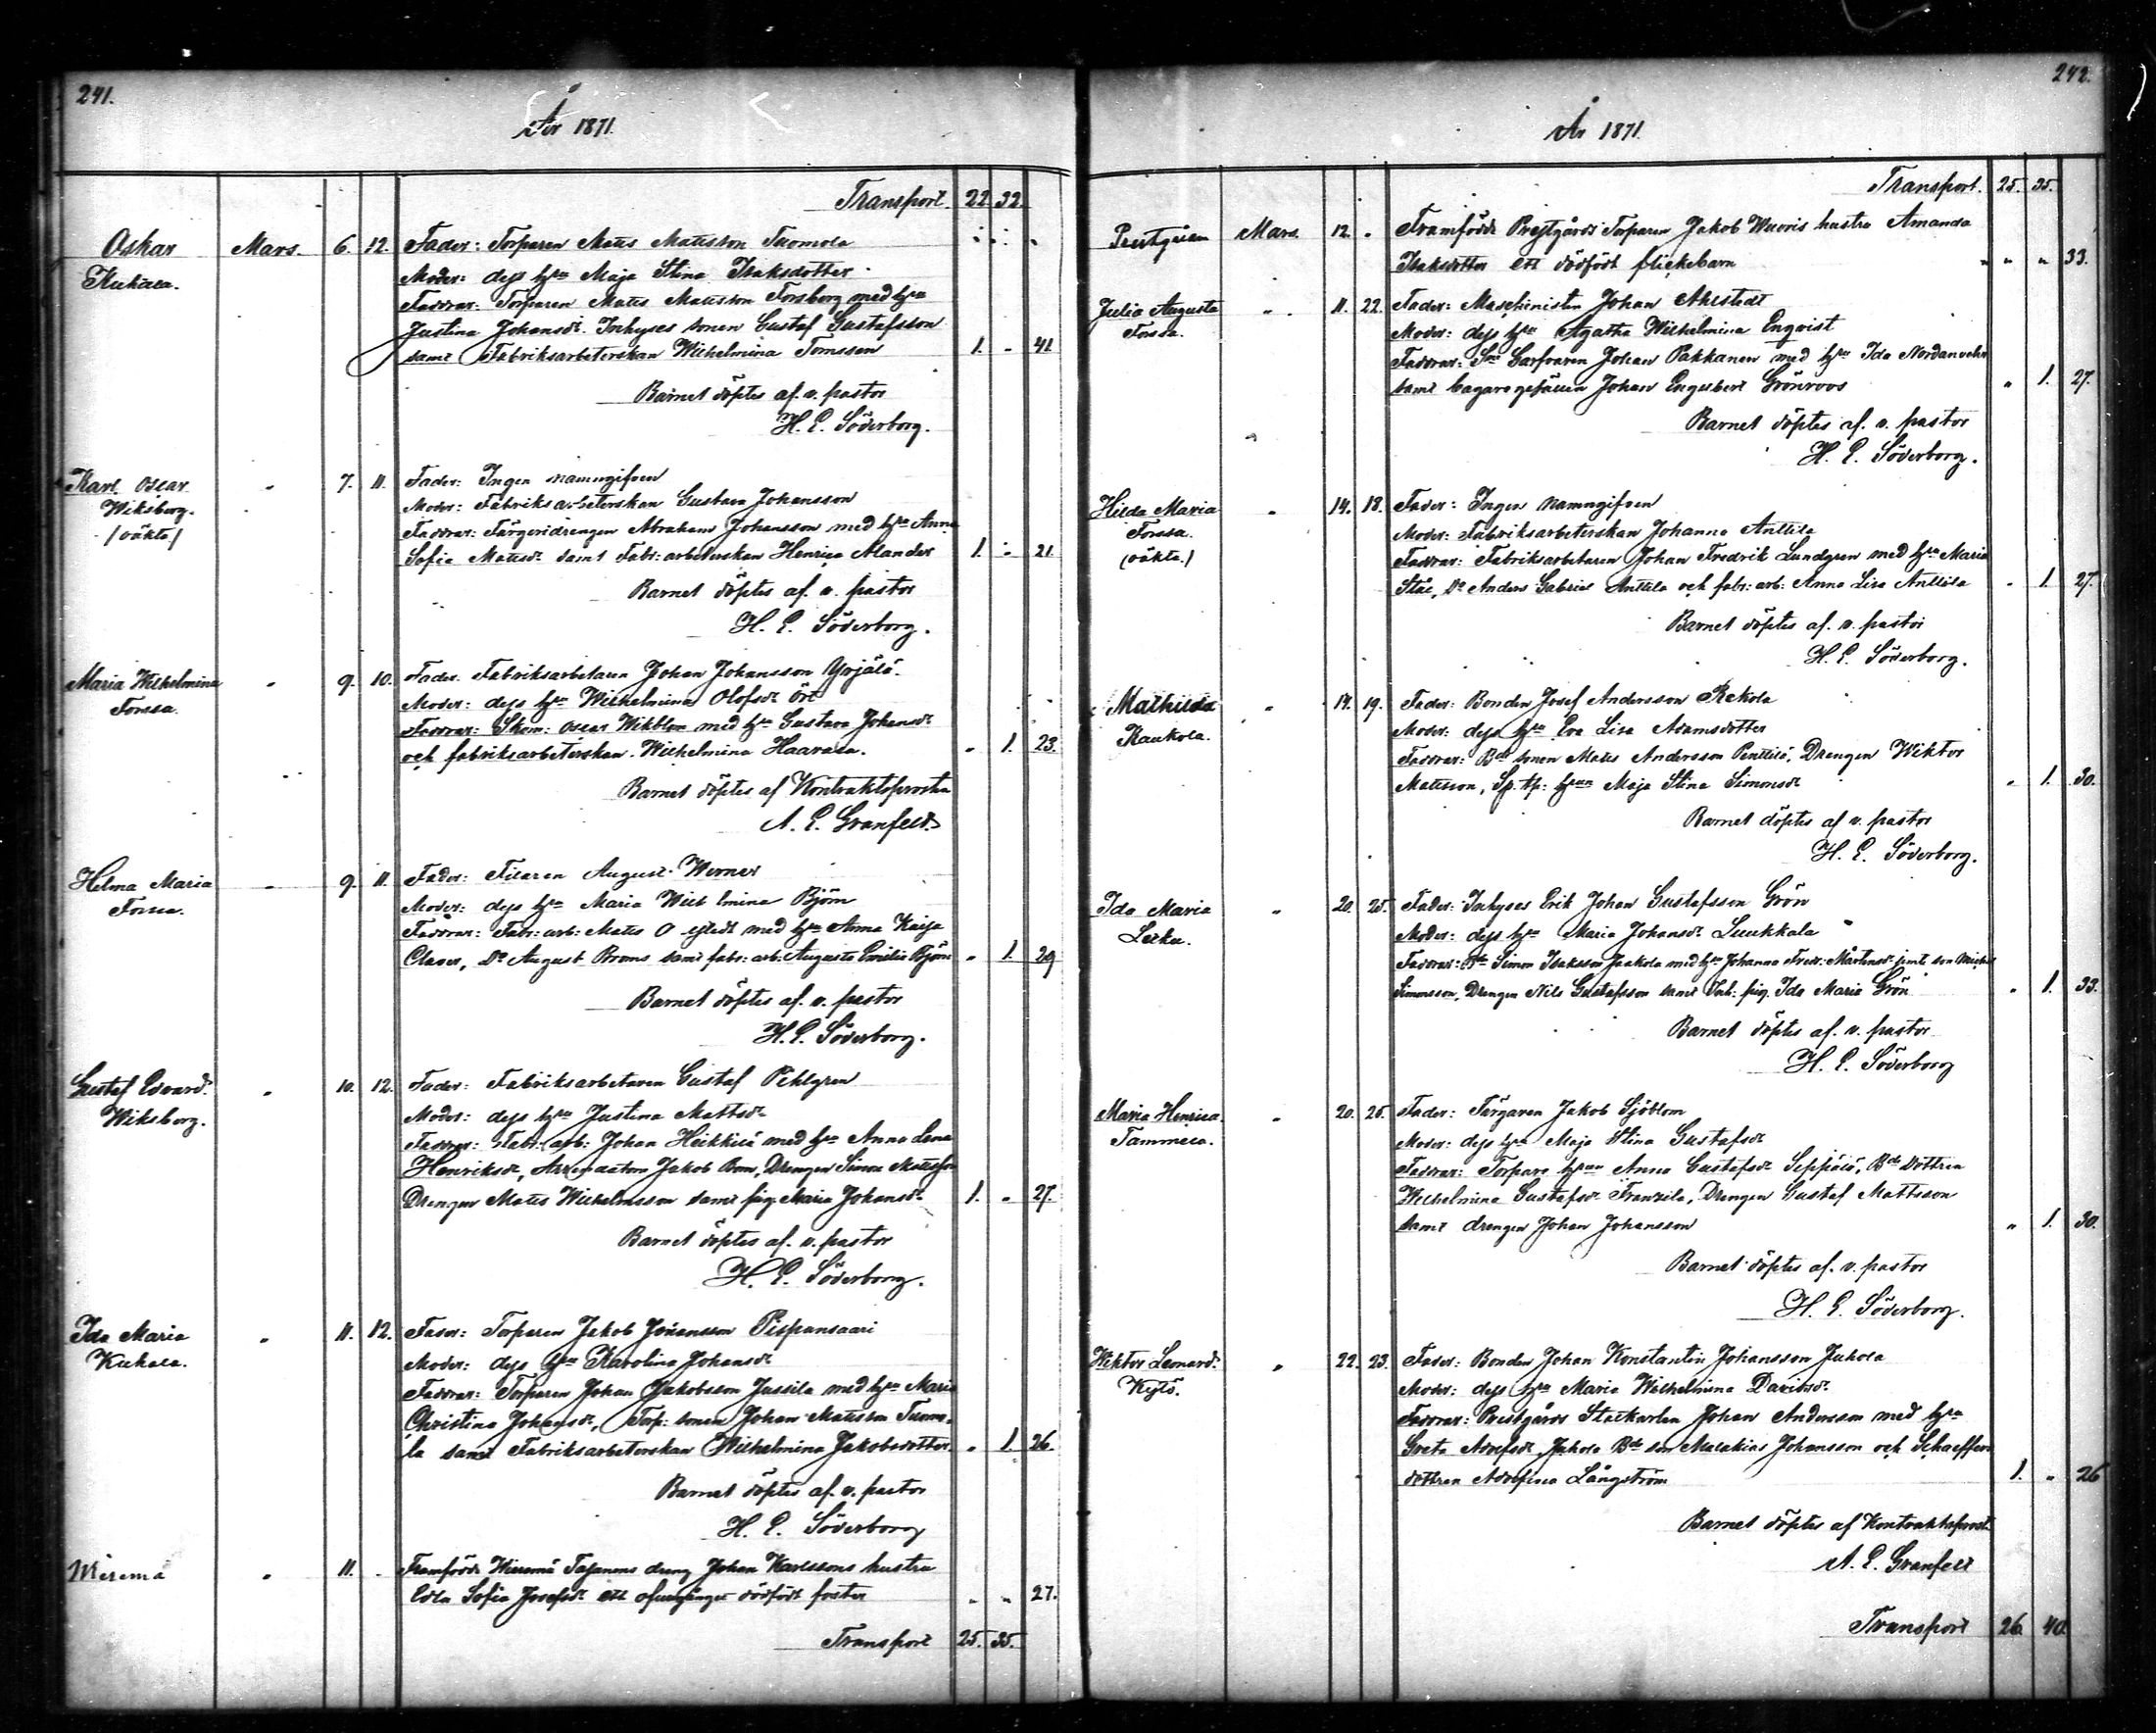 241.
År 1871.
Transport. 22. 32.
Oskar Mars. 6. 12. Fader: Torparen Matts Mattsson Tuomola
Kuhala. Moder: dess hu Maja Stina Isaksdotter
Faddrar: Torparen Matts Mattsson Forsberg med hu
Justina Johansdr. Inhyses sonen Gustaf Gustafsson
samt Fabriksarbeterskan Wilhelmina Tomsson 1. - 41.
Barnet döptes af v. pastor
H. E. Söderborg.
Karl Oscar " 7. 11. Fader: Ingen namngifven
Wiksberg. Moder: Fabriksarbeterskan Gustava Johansson
(oäkta) Faddrar: Färgeridrengen Abraham Johansson med hu Anna
Sofia Mattsdr samt Fabr: arbeterskan Henrica Alander 1. - 21.
Barnet döptes af v. pastor
H. E. Söderborg.
Maria Wilhelmina " 9. 10. Fader: Fabriksarbetaren Johan Johansson Yrjälä.
Forssa. Moder: dess hu Wilhelmina Olofsdr Ört
Faddrar: Skom: Oscar Wikblom med hu Gustava Johansdr
och fabriksarbeterskan Wilhelmina Haavala. " 1. 23.
Barnet döptes af Kontraktsprosten
A. E. Granfelt.
Helma Maria " 9. 11. Fader: Filaren August Werner
Forssa. Moder: dess hu Maria Wilhelmina Björn
Faddrar: Fabr: arb: Matts med hu Anna Kaisa
Do August Broms samt fabr: arb: Augusta Emilia Björn " 1. 29.
Barnet döptes af v. pastor
H. E. Söderborg.
Gustaf Edvard. " 10. 12. Fader: Fabriksarbetaren Gustaf Pihlgren
Wiksberg. Moder: dess hu Justina Mattsdr
Faddrar: Fabr: arb: Johan Heikkilä med hu Anna Lena
Henriksdr, Arrendatorn Jakob Bom, Drengen Simon Mattsson
Drengen Matts Wilhelmsson samt pig. Maria Johansdr 1. " 27.
Barnet döptes af v. pastor
H. E. Söderborg.
Ida Maria " 11. 12. Fader: Torparen Jakob Johansson Pispansaari
Kuhala. Moder: dess hu Karolina Johansdr
Faddrar: Torparen Johan Jakobsson Jussila med hu Maria
Christina Johansdr, Torp: sonen Johan Mattsson Tuomo-
la samt Fabriksarbeterskan Wilhelmina Jakobsdotter. " 1. 26.
Barnet döptes af v. pastor
H. E. Söderborg
Wieremä " 11. - Framfödde Wieremä Tapanens dreng Johan Karlssons hustru
Edla Sofia Josefsdr ett ofullgånget dödfödt foster " " 27.
Transport 25. 35.
242.
År 1871.
Transport. 25. 35.
Prestgården Mars. 12. " Framfödde Prestgårds Torparen Jakob Wuoris hustru Amanda
Isaksdotter ett dödfödt flickebarn " " " 33.
Julia Augusta " 11. 22. Fader: Maschinisten Johan Ahlstedt
Forssa. Moder: dess hu Agatha Wilhelmina Enqvist
Faddrar: Garfvaren Johan Pakkanen med hu Ida
samt bagaregesällen Johan Engelbert Grönroos " 1. 27.
Barnet döptes af v. pastor
H. E. Söderborg.
Hilda Maria " 14. 18. Fader: Ingen namngifven
Forssa. Moder: Fabriksarbeterskan Johanna Anttila
(oäkta.) Faddrar: Fabriksarbetaren Johan Fredrik Lundgren med hu Maria
Do Anders Gabriel Anttila och fabr: arb: Anna Lisa Anttila " 1. 27.
Barnet döptes af v. pastor
H. E. Söderborg.
Mathilda " 14. 19. Fader: Bonden Josef Andersson Rekola
Kaukola. Moder: dess hu Eva Lisa Adamsdotter
Faddrar: Bde sonen Matts Andersson Penttilä, Drengen Wiktor
Mattsson, Sp. tp: hun Maja Stina Simonsdr " 1. 30.
Barnet döptes af v. pastor
H. E. Söderborg.
Ida Maria " 20. 25. Fader: Inhyses Erik Johan Gustafsson Grön
Letku. Moder: dess hu Maria Johansdr Luukkala
Faddrar: Bde Simon Isaksson Jaakola med hu Johanna Fredr: Mårtensdr jemte son Michel
Simonsson, Drengen Nils Gustafsson samt Inh: pig. Ida Maria Grön " 1. 33.
Barnet döptes af v. pastor
H. E. Söderborg
Maria Henrica. " 20. 25. Fader: Färgaren Jakob Sjöblom
Tammela. Moder: dess hu Maja Stina Gustafsdr
Faddrar: Torpare hun Anna Gustafsdr Seppälä, Bde dottren
Wilhelmina Gustafsdr Franzila, Drengen Gustaf Mattsson
samt drengen Johan Johansson " 1. 30.
Barnet döptes af v. pastor
H. E. Söderborg.
Wiktor Leonard. " 22. 23. Fader: Bonden Johan Konstantin Johansson Jukola
Kylä. Moder: dess hu Maria Wilhelmina Davidsdr
Faddrar: Prestgårds Statkarlen Johan Andersson med hu
Greta Adolfsdr, Jukola Bde son Malakias Johansson och Schaeffers
dottren Adolfina Långström 1. " 26
Barnet döptes af Kontraktsprost.
A. E. Granfelt
Transport 26. 40.